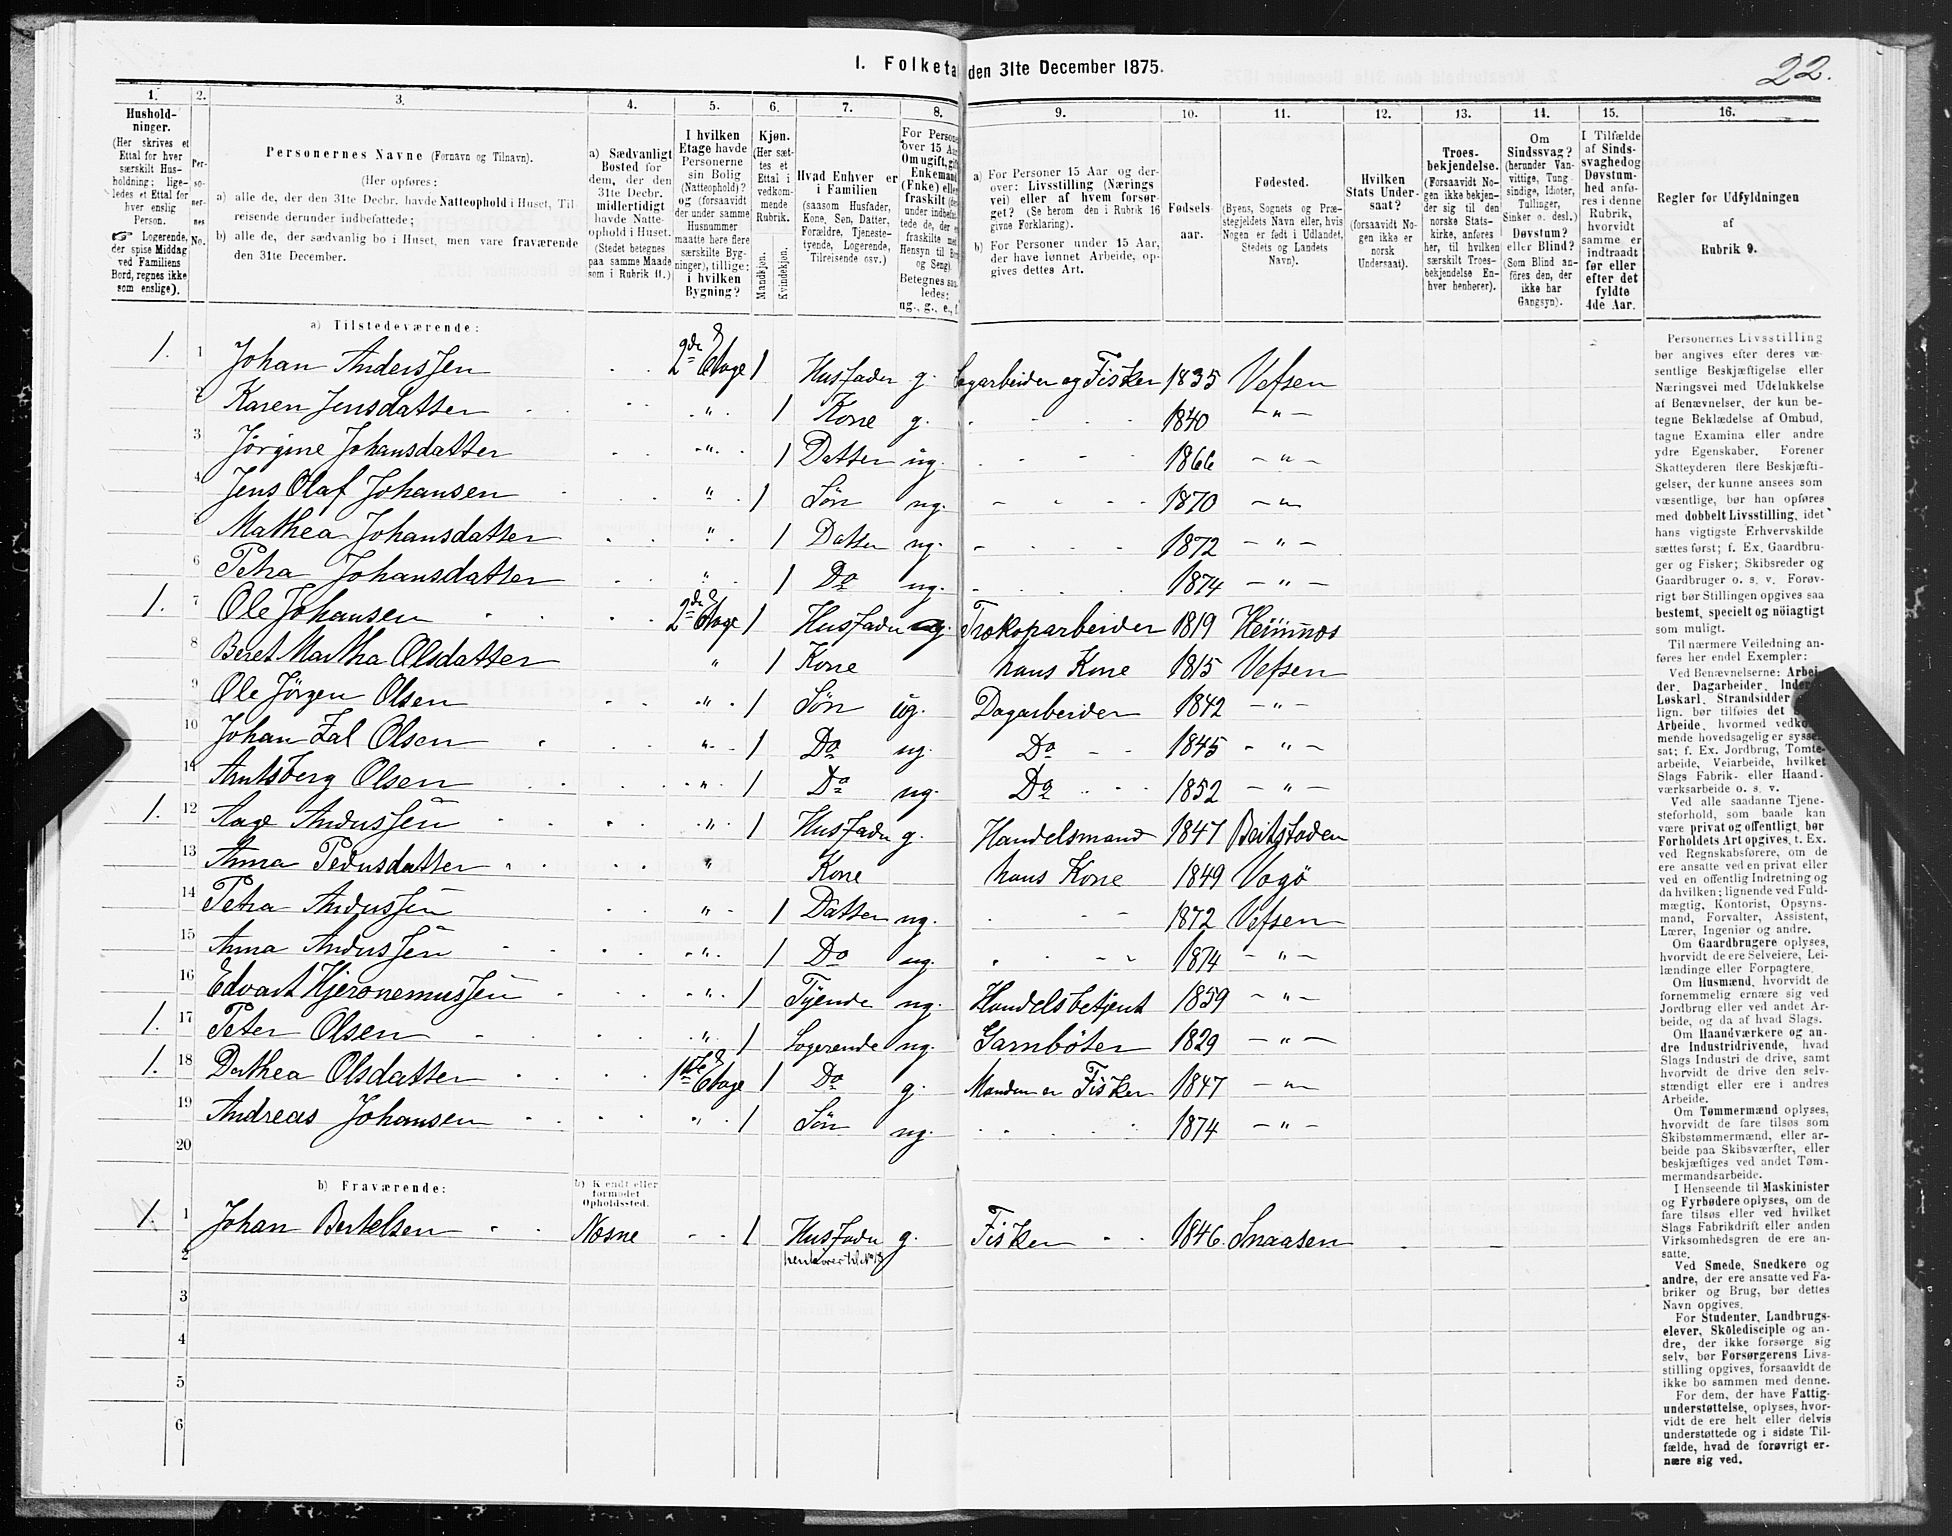 22.
1. Folketæ den 31te December 1875.
1. 2. 3. 4. 5. 6. 7. 8. 9. 10. 11. 12. 13. 14. 15. 16.
Hushold-
ninger.
(Her skrives et
Ettal for hver
særskilt Hus-
holdning; lige-
ledes et Ettal for
hver enslig
Person.
☞ Logerende,
der spise Middag
ved Familiens
Bord, regnes ikke
som enslige).
Per-
so-
ner-
nes
No.
Personernes Navne (Fornavn og Tilnavn).
(Her opføres:
a) alle de, der den 31te Decbr. havde Natteophold i Huset, Til
reisende derunder indbefattede;
b) alle de, der sædvanlig bo i Huset, men vare fraværende
den 31te December.
a) Sædvanligt
Bosted for
dem, der den
31te Decbr.
midlertidigt
havde Natte-
ophold i Huset.
(Stedet betegnes
paa samme Maade
som i Rubrik 11.)
I hvilken
Etage havde
Personerne
sin Bolig
(Natteophold)?
og (forsaavidt
der under samme
Husnummer
maatte høre flere
særskilte Byg-
ninger), tillige:
i hvilken
Bygning?
Kjøn.
(Her sæt-
tes et
Ettal i
vedkom-
mende
Rubrik.
Mandkjøn.
Kvindekjøn.
Hvad Enhver er
i Familien
(saasom Husfader,
Kone, Søn, Datter,
Forældre, Tjeneste-
tyende, Logerende,
Tilreisende osv.)
For Persone
over 15 Aa
Om ugift, gif
Enkemand
(Enke) elle
fraskilt (der
under indbefat
tede de, der e
fraskilte med
Hensyn til Bo
og Seng).
Betegnes saa
ledes:
ug., g., e., f.
a) For Personer 15 Aar og der-
over: Livsstilling (Nærings
vei) eller af hvem forsør-
get? (Se herom den i Rubrik 16
givne Forklaring).
b) For Personer under 15 Aar,
der have lønnet Arbeide, op-
gives dettes Art.
Fødsels-
aar.
Fødested.
(Byens, Sognets og Præ-
stegjeldets Navn eller, hvis
Nogen er født i Udlandet,
Stedets og Landets
Navn).
Hvilken
Stats Under-
saat?
(forsaavidt No-
gen ikke er
norsk
Undersaat).
Troes-
bekjendelse.
(Forsaavidt No-
gen ikke bekjen-
der sig til den
norske Stats-
kirke, anføres
her, til hvilken
særskilt Troes-
bekjendelse En-
hver henhører).
Om
Sindssvag?
(herunder Van-
vittige, Tung-
sindige, Idioter,
Tullinger,
Sinker o. desl.)
Døvstum?
eller Blind?
(Som Blind an-
føres den, der
ikke har
Gangsyn).
I Tilfælde
af Sinds-
svaghed og
Døvstum-
hed anfø-
res i denne
Rubrik,
hvorvidt
samme er
indtraadt
før eller
efter det
fyldte
4de Aar.
Regler for Udfyldningen
af
Rubrik 9.
a) Tilstedeværende:
1. 1 Johan Anderssen 2den Etage 1 Husfader g. Dagarbeider og Fisker 1835 Vefsen
2 Karen Jensdatter " 1 Kone g. 1840 - " -
3 Jørgine Johansdatter " 1 Datter ug. 1866 - " -
4 Jens Olaf Johansen " 1 Søn ug. 1870 - " -
5 Mathea Johansdatter " 1 Datter ug. 1872 - " -
6 Petra Johansdatter " 1 Do ug. 1874 - " -
1. 7 Ole Johansen 2den Etage 1 Husfader g. 1819
8 Beret Martha Olsdatter " 1 Kone hans Kone 1815 Vefsen
9 Ole Jörgen Olsen " 1 Søn ug. Dagarbeider 1842 - " -
10 Johan Zal Olsen " 1 Do ug. Do 1845 - " -
11 Amtsberg Olsen " 1 Do ug. Do 1852 - " -
1. 12 Aage Anderssen " 1 Husfader g. Handelsmand 1847 Beitstaden
13 Anna Pedersdatter " Kone hans Kone 1849 Vagö
14 Petra Anderssen " 1 Datter ug. 1872 Vefsen
15 Anna Anderssen " 1 Do ug. 1874 - " -
16 Edvart Hjeronemussen " 1 Tyende ug. Handelsbetjent 1859 - " -
1. 17 Peter Olsen " 1 Logerende ug. Garnböter 1829 - " -
1. 18 Dorthea Olsdatter 1ste Etage 1 Do g. Manden er Fisker 1847 - " -
19 Andreas Johansen " 1 Søn ug. 1874 - " -
20
b) Fraværende:
b) Kjendt eller
formodet
Opholdssted.
1. 1 Johan Bertelsen Næsne 1 Husfader g. Fisker 1846. Snaasen
2 henhører til No 18
3
4
5
6
Personernes Livsstilling
bør angives efter deres væ-
sentlige Beskjæftigelse eller
Næringsvei med Udelukkelse
af Benævnelser, der kun be-
tegne Beklædelse af Ombud,
tagne Examina eller andre
ydre Egenskaber. Forener
Skatteyderen flere Beskjæfti-
gelser, der kunne ansees som
væsentlige, bør han opføres
med dobbelt Livsstilling, idet
hans vigtigste Erhvervskilde
sættes først; f. Ex. Gaardbru-
ger og Fisker; Skibsreder og
Gaardbruger o. s. v. Forøv-
rigt bør Stillingen opgives saa
bestemt, specielt og nöiagtigt
som muligt.
Til nærmere Veiledning an-
føres her endel Exempler:
Ved Benævnelserne: Arbei-
der, Dagarbeider, Inderst,
Løskarl, Strandsidder
lign. bør tilføies det
Arbeide, hvormed vedkom-
mende hovedsagelig er syssel-
sat; f. Ex. Jordbrug, Tomte-
arbeide, Veiarbeide, hvilket
Slags Fabrik- eller Haand-
værksarbeide o. s. v.
Ved alle saadanne Tjene-
steforhold, som baade kan
være privat og offentligt, bør
Forholdets Art opgives, t. Ex.
ved Regnskabsførere, om de
ere ansatte ved en privat eller
ved en offentlig Indretning og
da hvilken; lignende ved Fuld-
mægtig, Kontorist, Opsyns-
mand, Forvalter, Assistent,
Lærer, Ingeniør og andre.
Om Gaardbrugere oplyses,
hvorvidt de ere Selveiere, Lei-
lændinge eller Forpagtere.
Om Husmænd, hvorvidt de
fornemmelig ernære sig ved
Jordbrug eller ved andet Ar-
beide, og da af hvad Slags.
Om Haandværkere og an-
dre Industridrivende, hvad
Slags Industri de drive, samt
hvorvidt de drive den selv-
stændigt eller ere i andres
Arbeide.
Om Tømmermænd oplyses,
hvorvidt de fare tilsøs som
Skibstømmermænd, eller ar-
beide paa Skibsværfter, eller
beskjæftiges ved andet Tøm-
mermandsarbeide.
I Henseende til Maskinister
og Fyrbødere oplyses, om de
fare tilsøs eller ved hvilket
Slags Fabrikdrift eller anden
Virksomhedsgren de ere an-
satte.
Ved Smede, Snedkere og
andre, der ere ansatte ved Fa-
briker og Brug, bør dettes
Navn opgives.
For Studenter, Landbrugs-
elever, Skōledisciple og an-
dre, der ikke forsørge sig
selv, bør Forsørgerens Livs-
stilling opgives, forsaavidt de
ikke bo sammen med denne.
For dem, der have Fattig-
understøttelse, oplyses, hvor-
vidt de ere helt eller delvis
understøttede og i sidste Til-
fælde, hvad de forøvrigt er-
nære sig ved.